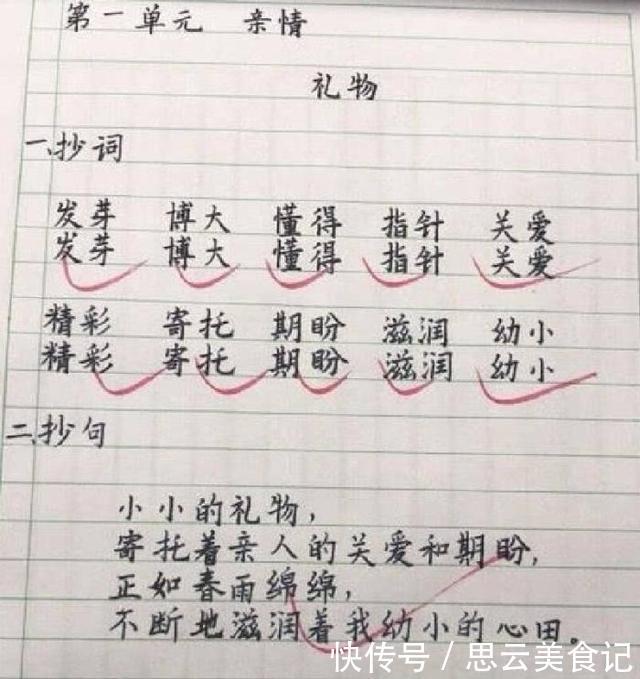 第一单元 亲情
礼物
一、抄词
发芽 博大 懂得 指针 关爱
发芽 博大 懂得 指针 关爱
精彩 寄托 期盼 滋润 幼小
精彩 寄托 期盼 滋润 幼小
二.抄句
小小的礼物，
寄托着亲人的关爱和期盼，
正如春雨绵绵，
不断地滋润着我幼小的心田。
快传号 / 思云美食记